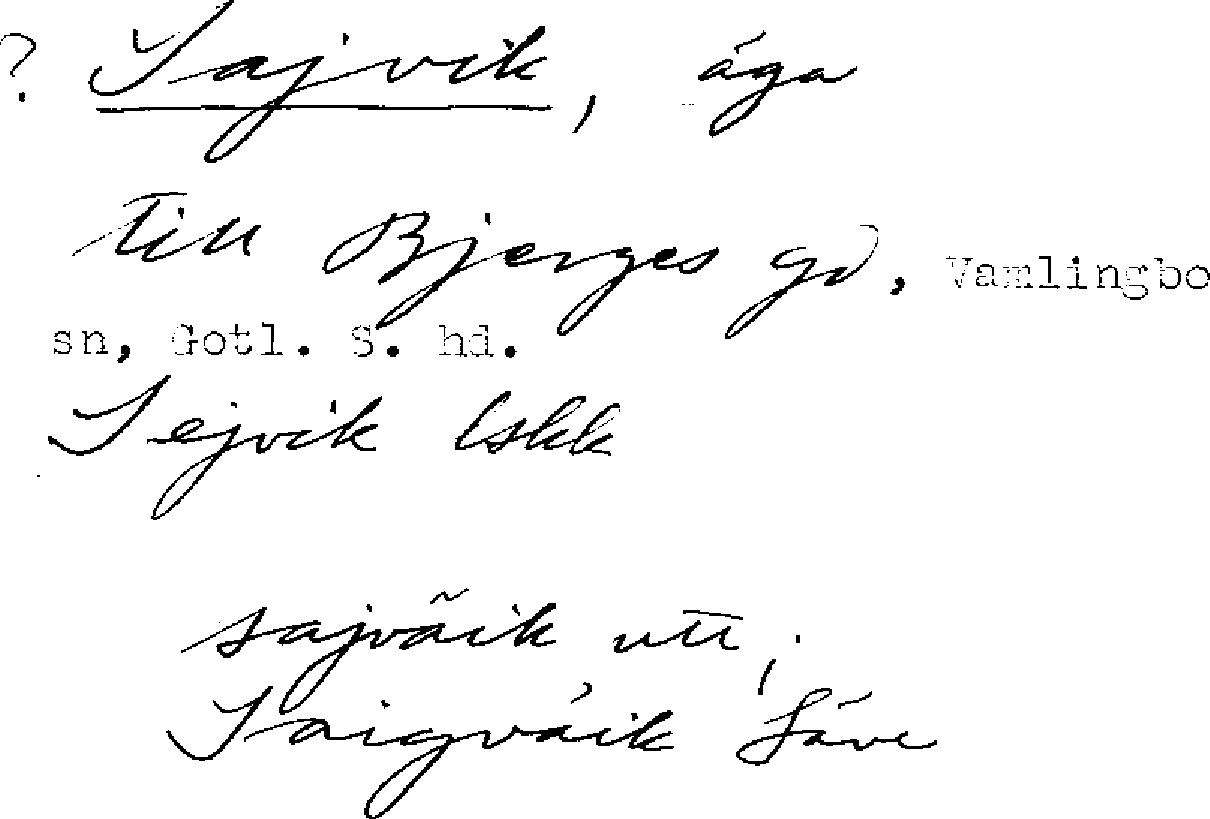 ? Sajvik, äga
till Bjerges gd, Vamlingbo
sn, Gotl. S. hd.
Sejvik lskk
sajvãik utt;
Saigváik Säve